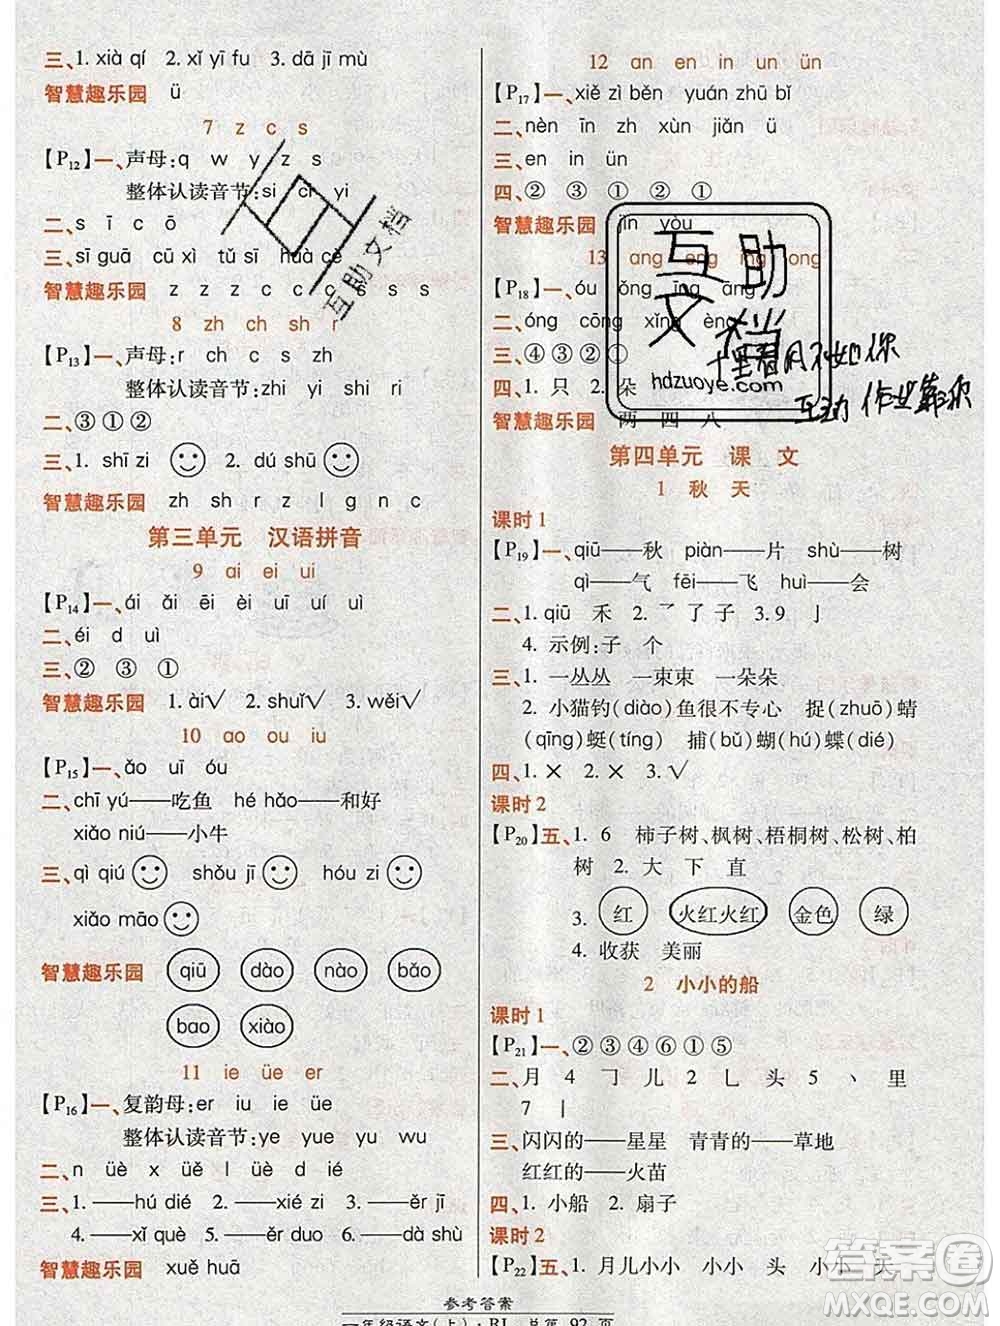 三、1. xià qí　2. xǐ yī fu　3. dā jī mù
智慧趣乐园　ü
7　z　c　s
【P12】一、声母:q　w　y　z　s
整体认读音节:si　ci　yi
二、s　ī　c　ō
三、sī guā　cū xì　tǔ sī　huà cè
智慧趣乐园　z　z　z　c　c　c　s　s　s
8　zh　ch　sh　r
【P13】一、声母:r　ch　s　zh
整体认读音节:zhi　yi　shi　ri
二、③①②
三、1. shī zi　2. dú shū
智慧趣乐园　zh　sh　r　z　l　g　n　c
第三单元　汉语拼音
9　ai　ei　ui
【P14】一、ái　ǎi　ēi　èi　uī　uí　uì
二、éi　d　uì
三、②　③　①
智慧趣乐园　1. ài√　2. shuǐ√　3. wěi√
10　ao　ou　iu
【P15】一、ǎo　uī　óu
二、chī yú——吃鱼　hé hǎo——和好
xiǎo niú——小牛
三、qì qiú　shǒu jī　hóu zi
xiǎo māo
智慧趣乐园　qiū　dào　nào　bǎo
bao　xiào
11　ie　üe　er
【P16】一、复韵母:er　iu　ie　üe
整体认读音节:ye　yue　yu　wu
二、n　üè　x　üě　l　üè　d　ié
三、1. ——hú dié　2. ——xié zi　3. ——ěr jī
4. ——xǐ què　5. ——dà shù
智慧趣乐园　xuě huā
12　an　en　in　un　ün
【P17】一、xiě zì běn　yuán zhū bǐ
二、nèn　īn　zh　xùn　jiǎn　ü
三、en　in　ün
四、②　③　①　②　①
智慧趣乐园　jīn　yòu
13　ang　eng　ing　ong
【P18】一、óu　ǒng　īng　āng
二、óng　cōng　xǐng　èng
三、④③①②
四、1. 只　2. 朵
智慧趣乐园　两　四　八
第四单元　课　文
1　秋　天
课时1
【P19】一、qiū——秋　piàn——片　shù——树
qì——气　fēi——飞　huì——会
二、1. qiū　禾　2. 乛　了　子　3. 9　亅
4. 示例:子　个
三、1. 一丛丛　一束束　一朵朵
2. 小猫钓(diào)鱼很不专心　捉(zhuō)蜻
(qīng)蜓(tíng)　捕(bǔ)蝴(hú)蝶(dié)
四、1. ×　2. ×　3. √
课时2
【P20】五、1. 6　柿子树、枫树、梧桐树、松树、柏
树　2. 大　下　直
3. 红　火红火红　金色　绿
4. 收获　美丽
2　小小的船
课时1
【P21】一、②③④⑥①⑤
二、月　4　㇆　儿　2　乚　头　5　丶　里
7　丨
三、闪闪的——星星　青青的——草地
红红的——火苗
四、1. 小船　2. 扇子
课时2
【P22】五、1. 月儿小小　头　小小　天
互助文档
互助文档
hdzuoye.com
答案圈
MXQE.COM
参考答案
一年级语文(上)·RJ　总第　92　页